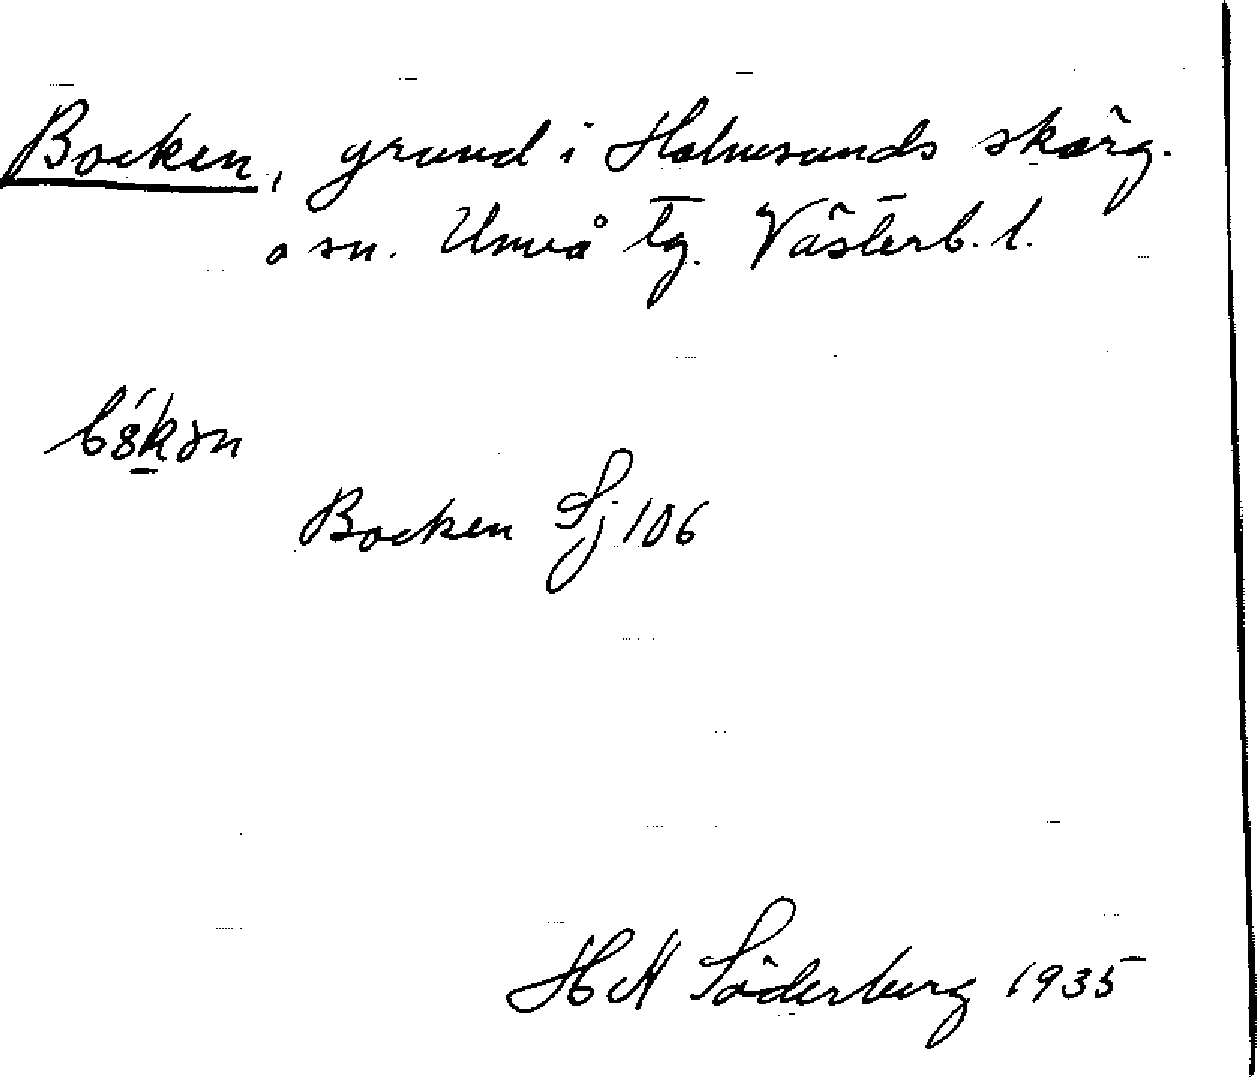 Bocken, grund i Holmsunds skärg.
o sn. Umeå tg. Västerb. l.
Bocken Sj 106
H Söderberg 1935